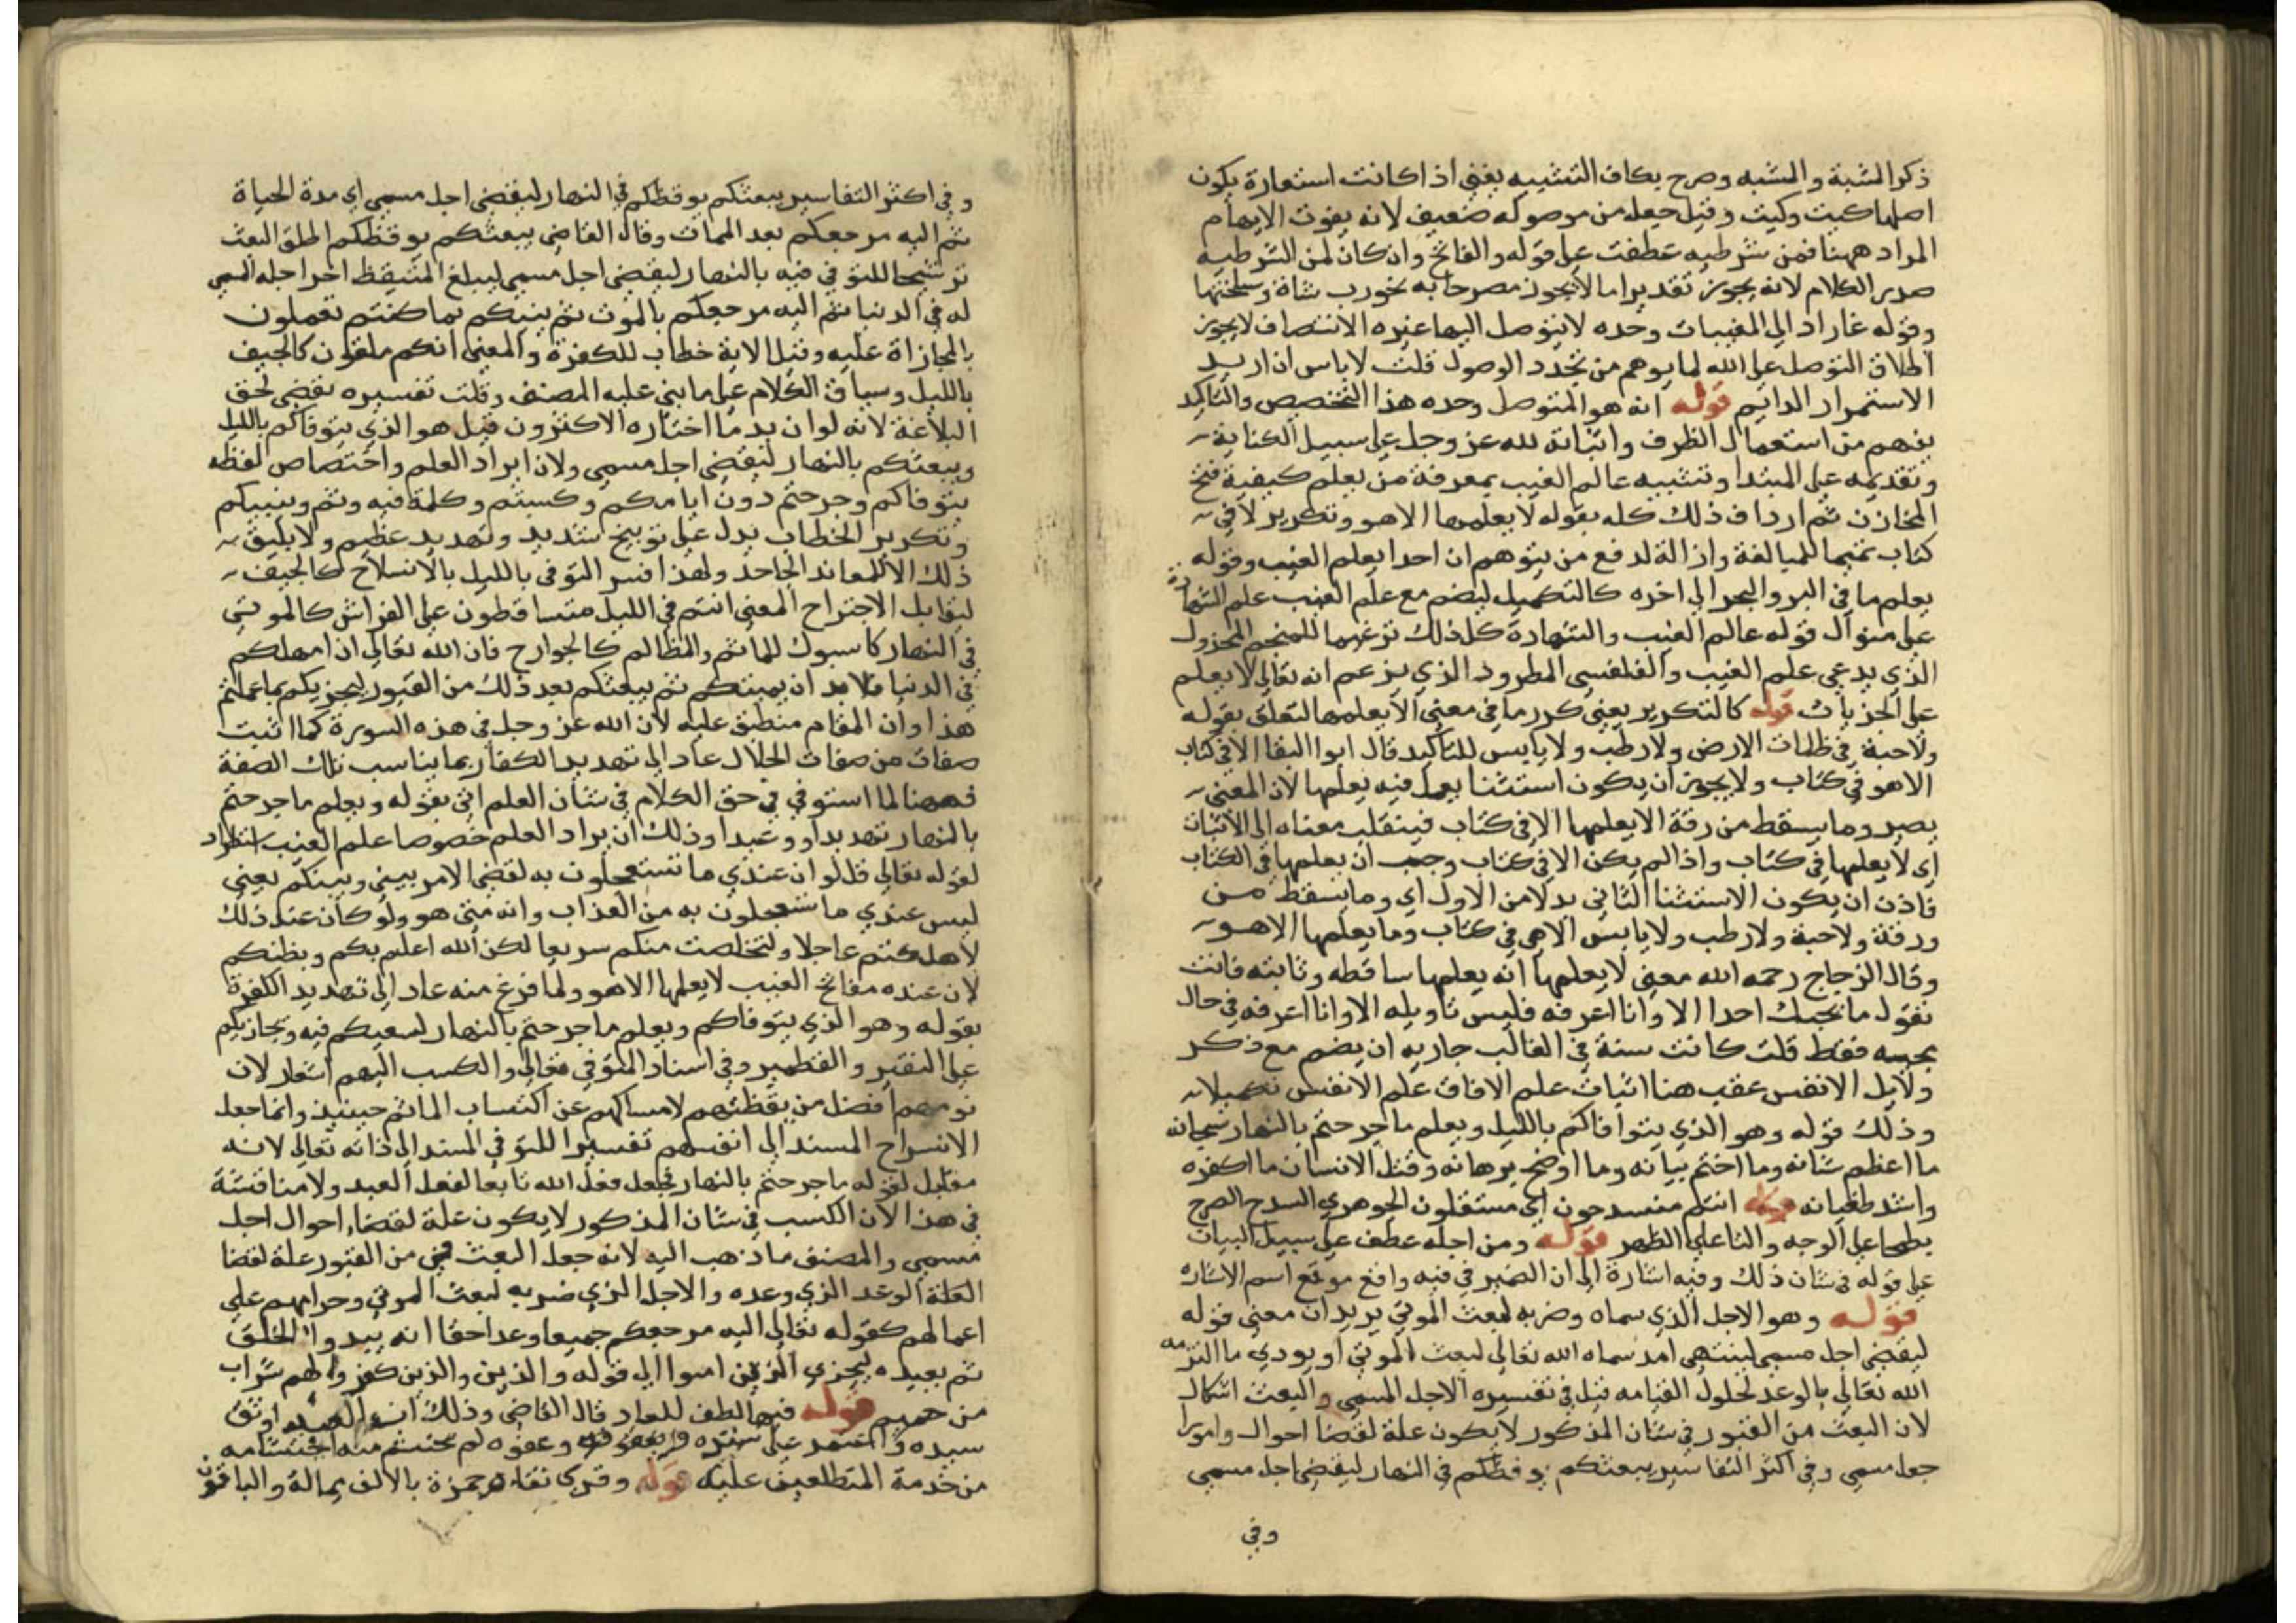 ذكر المشبة والمشبه وصرح بكاف التشبيه يغني اذا كانت استعارة يكون
اصلها كيت وكيت وقيل جعله من موصوله ضعيف لانه يفوت الايهام
المراد ههنا فمن شرطيه عطفت على قوله والفاتح وان كان لمن الشرطيه
صدر الكلام لانه يجوز تقديرا ما لا يجوز مصرحا به نحو رب شاة وسخلتها
وقوله غاراد الى المغيبات وحده لا يتوصل اليها غيره الانتصاف لا يجوز
اطلاق التوصل على الله لما يوهم من تجدد الوصول قلت لا باس ان اريد
الاستمرار الدايم قوله انه هو المتوصل وحده هذا التخصيص والتاكيد
يفهم من استعمال الظرف واثباته لله عز وجل على سبيل الكناية
وتقديمه على المبتدا وتشبيه عالم الغيب بمعرفة من يعلم كيفية فتح
المخازن ثم ارداف ذلك كله بقوله لا يعلمها الا هو وتكرير لا في
كتاب تتميما للمبالغة وازالة لدفع من يتوهم ان احدا يعلم الغيب وقوله
يعلم ما في البر والبحر الى اخره كالتكميل ليضم مع علم الغيب علم الشهادة
على منوال قوله عالم الغيب والشهادة كل ذلك ترغيما للمنجم المخذول
الذي يدعي علم الغيب والفلفسى المطرود الذي يزعم انه تعالى لا يعلم
على الجزيات قوله كالتكرير يعني كرر ما في معنى الا يعلمها لتعلق بقوله
ولا حبة في ظلمات الارض ولا رطب ولا يابس للتاكيد قال ابوا البقا الا في كتاب
الا هو في كتاب ولا يجوز ان يكون استثنا يعمل فيه يعلمها لان المعنى
يصير وما يسقط من رقة الا يعلمها الا في كتاب فينقلب معناه الى الاثبات
اى لا يعلمها في كتاب واذا لم يكن الا في كتاب وجب ان يعلمها في الكتاب
فاذن ان يكون الاستثنا الثاني بدلا من الاول اي وما يسقط من
ورقة ولا حبة ولا رطب ولا يابس الا هي في كتاب وما يعلمها الا هو
وقال الزجاج رحمه الله معنى لا يعلمها انه يعلمها ساقطه وثابته فانت
تقول ما نجيك احدا الا وانا اعرفه فليس تاويله الا وانا اعرفه في حال
بجيه فقط قلت كانت سنة في الغالب جاريه ان يضم مع ذكر
ولايل الانفس عقب هنا اثبات علم الافاق علم الانفس تكميلا
وذلك قوله وهو الذي يتوافاكم بالليل ويعلم ما جرحتم بالنهار سبحانه
ما اعظم شانه وما اختم بيانه وما اوضح برهانه وقتل الانسان ما اكفره
واشد طغيانه قوله انتم منسدحون اي مستلقون الجوهري السدح الصرح
بطحا على الوجه والقا على الظهر قوله ومن اجله عطف على سبيل البيان
على قوله في شان ذلك وفيه اشارة الى ان الضمير في فيه واقع موقع اسم الاشاره
قوله وهو الاجل الذي سماه وضربه لبعث الموتى يريد ان معنى قوله
ليقضى اجل مسمى لينتهى امد سماه الله تعالى لبعث الموتى او يودي ما التزمه
الله تعالى بالوعد لحلول القيامه قيل في تفسيره الاجل المسمى والبعث اشكال
لان البعث من القبور في شان المذكور لا يكون علة لقضا احوال وامورا
جعل مسمى وفي اكثر التفاسير يبعثكم يوقظكم في النهار ليقضى اجل مسمى
وفي
وفي اكثر التفاسير يبعثكم يوقظكم في النهار ليقضى اجل مسمى اي مدة الحياة
ثم اليه مرجعكم بعد الممات وقال القاضى يبعثكم يوقظكم اطلق البعث
ترشيحا للتوفي فيه بالنهار ليقضى اجل مسمى ليبلغ المتيقظ اخر اجله المسمى
له في الدنيا ثم اليه مرجعكم بالموت ثم ينبيكم بما كنتم تعملون
بالمجازاة عليه وقيل الاية خطاب للكفرة والمعنى انكم ملقون كالجيف
بالليل وسياق الكلام على ما بنى عليه المصنف وقلت تفسيره يقضى لحق
البلاغة لانه لو ان يد ما اختاره الاكثرون قيل هو الذي يتوفاكم بالليل
ويبعثكم بالنهار ليقضى اجل مسمى ولان ايراد العلم واختصاص لفظه
يتوفاكم وجرحتم دون ايامكم وكسبتم وكلمة فيه وثم وينبيكم
وتكرير الخطاب يدل على توبيخ شديد وتهديد عظيم ولا يليق
ذلك الا للمعاند الجاحد ولهذا فسر التوفى بالليل بالانسلاح كالجيف
ليقابل الاجتراح المعنى انتم في الليل متساقطون على الفراش كالموتى
في النهار كاسبون للمأثم والمظالم كالجوارح فان الله تعالى ان امهلكم
في الدنيا فلابد ان يميتكم ثم يبعثكم بعد ذلك من القبور ليجزيكم بما عملتم
هذا وان المقام منطبق عليه لان الله عز وجل في هذه السورة كما اثبت
صفات من صفات الجلال عاد الى تهديد الكفار بما يناسب تلك الصفة
فههنا لما استوفي في حق الكلام في شان العلم اتى بقوله ويعلم ما جرحتم
بالنهار تهديدا ووعيدا وذلك ان يراد العلم خصوصا علم الغيب استطراد
لقوله تعالى قل لو ان عندي ما تستعجلون به لقضى الامر بيني وبينكم يعني
ليس عندي ما تستعجلون به من العذاب وانه متى هو ولو كان عند ذلك
لاهلكتم عاجلا ولتخلصت منكم سريعا لكن الله اعلم بكم وبظنكم
لان عنده مفاتح الغيب لا يعلمها الا هو ولما فرغ منه عاد الى تهديد الكفرة
بقوله وهو الذي يتوفاكم ويعلم ما جرحتم بالنهار لسعيكم فيه ويجازيكم
على النقير والقطمير وفي اسناد التوفي تعالى والكسب اليهم اشعار لان
نومهم افضل من يقظتهم لامساكهم عن اكتساب الماثم حينيذ وانما جعل
الانسراح المسند الى انفسهم تفسيرا للتوفي المسند الى ذاته تعالى لانه
مقابل لقوله ما جرحتم بالنهار فجعل فعل الله تابعا لفعل العبد ولا مناقشة
في هذا لان الكسب في شان المذكور لا يكون علة لقضاء احوال اجل
مسمى والمصنف ما ذهب اليه لانه جعل البعث من القبور علة لقضا
العلة الوعد الذي وعده والاجل الذي ضربه لبعث الموتى وجزايهم على
اعمالهم كقوله تعالى اليه مرجعكم جميعا وعد الله حقا انه يبدوا الخلق
ثم يعيده ليجزي الذين امنوا الى قوله والذين والذين كفروا لهم شراب
من حميم قوله فيه الطف للعباد قال القاضى وذلك ان العبد اوثق
سيده واعتمد على ستره وعفوه لم يحتشم منه احتشامه
من خدمة المتطلعين عليه قوله وقري توفاه حمزة بالالف ممالة والباقون